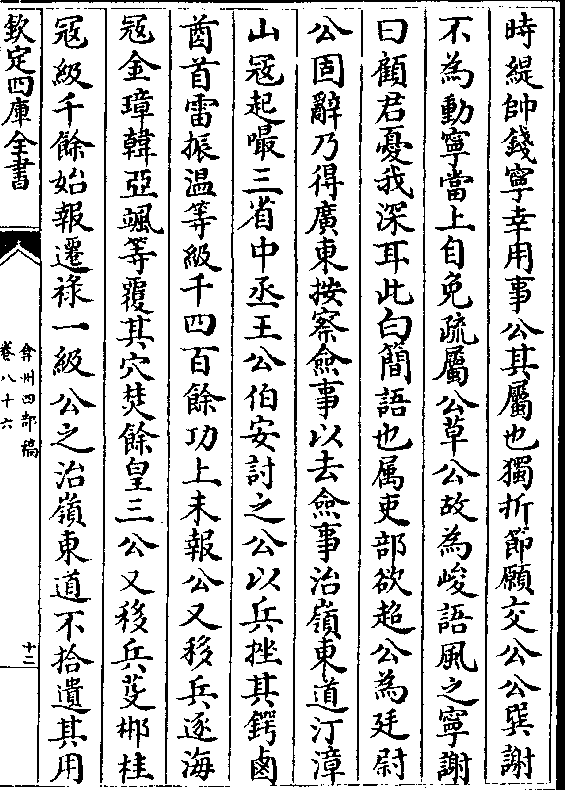 時緹帥錢寧幸用事公其屬也獨折節願交公公巽謝
不為動寧當上自免疏屬公草公故為峻語風之寧謝
曰顧君憂我深耳此白簡語也属吏部欲超公為廷尉
公固辭乃得廣東按察僉事以去僉事治嶺東道汀漳
山冦起嘬三省中丞王公伯安討之公以兵挫其鍔鹵
酋首雷振温等級千四百餘功上未報公又移兵逐海
冦金璋韓亞颯等覆其穴焚餘皇三公又移兵芟郴桂
冦級千餘始報遷祿一級公之治嶺東道不拾遺其用
欽定四庫全書
弇州四部稿
卷八十六
十二